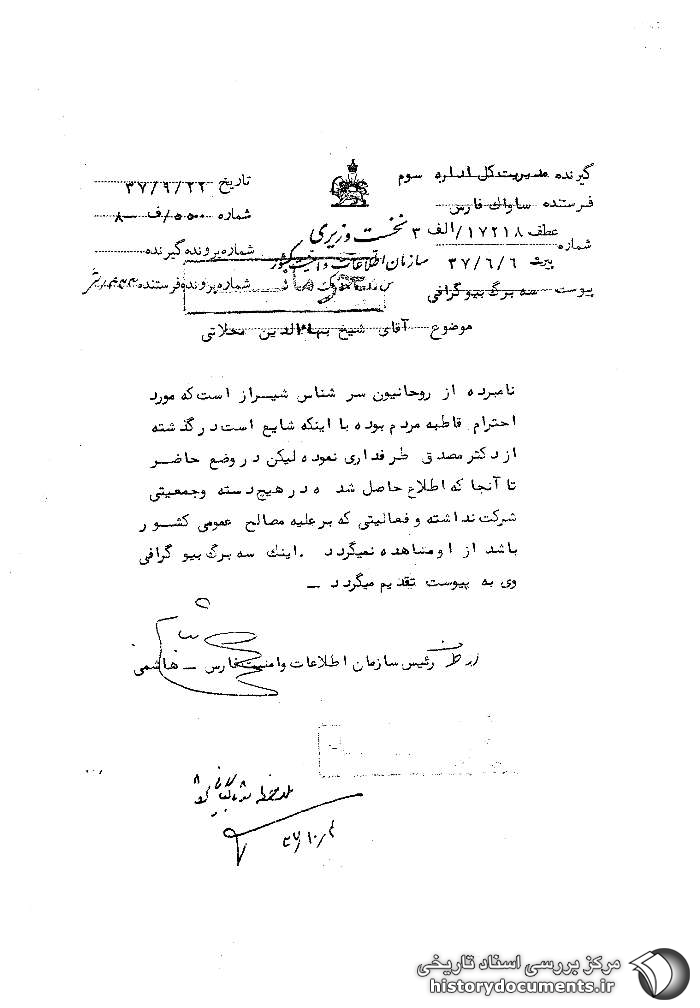 گیرنده مدیریت کل اداره سوم
فرستنده ساواک فارس
شماره عطف ۱۷۲۱۸/الف ۳
پیرو ۳۷/۶/۶
پیوست سه برگ بیوگرافی
نخست وزیری
سازمان اطلاعات و امنیت کشور
تاریخ ۳۷/۹/۲۲
شماره ۵۵۰۰/ف ۸۰
شماره پرونده گیرنده
شماره پرونده فرستنده
موضوع آقای شیخ بهاءالدین محلاتی
نامبرده از روحانیون سر شناس شیراز است که مورد
احترام قاطبه مردم بوده با اینکه شایع است در گذشته
از دکتر مصدق طرفداری نموده لیکن در وضع حاضر
تا آنجا که اطلاع حاصل شده در هیچ دسته وجمعیتی
شرکت نداشته و فعالیتی که بر علیه مصالح عمومی کشور
باشد از او مشاهده نمیگردد . اینک سه برگ بیو گرافی
وی به پیوست تقدیم میگردد ـ
از طرف رئیس سازمان اطلاعات وامنیت فارس ـ هاشمی
ملاحظه شد بایگانی شود
مرکز بررسی اسناد تاریخی
historydocuments.ir